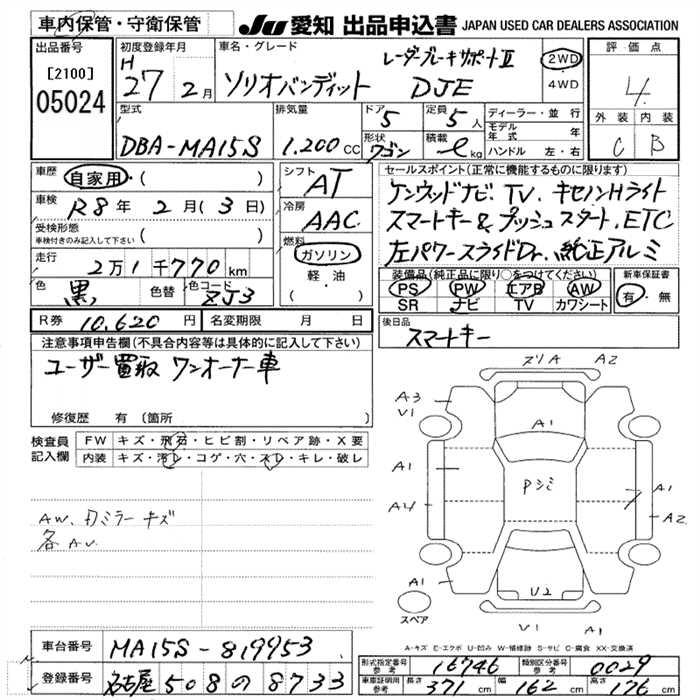 車内保管・守衛保管 JU 愛知 出品申込書 JAPAN USED CAR DEALERS ASSOCIATION
出品番号 [2100] 05024
初度登録年月 H 27 2月
車名・グレード レーダーブレーキサポートⅡ
ソリオバンディット DJE
2WD
4WD
評価点 4
外装 内装
C B
型式 DBA-MA15S
排気量 1.200 CC
ドア 5 定員 5人
形状 ワゴン 積載 kg
ディーラー・並行
モデル年式 年
ハンドル 左・右
車歴 自家用・( )
車検 R8年 2月(3日)
受検形態 ( )
車検付きのみ記入して下さい
走行 2万1千770km
色 黒 色替 色コード ZJ3
シフト AT
冷房 AAC
燃料 ガソリン
軽・油
( )
セールスポイント(正常に機能するものに限ります)
ケンウッドナビ、TV、キセノンHライト
スマートキー&プッシュスタート、ETC
左パワースライドDr、純正アルミ
装備品(純正品に限り○をつけてください)
PS PW エアB AW
SR ナビ TV カワシート
新車保証書
有・無
R券 10,620円 名変期限 月 日
後日品 スマートキー
注意事項申告欄(不具合内容等は具体的に記入して下さい)
ユーザー買取 ワンオーナー車
修復歴 有 (箇所
検査員記入欄
FW キズ・飛石・ヒビ割・リペア跡・X要
内装 キズ・汚レ・コゲ・穴・スレ・キレ・破レ
AW、ドミラーキズ
スリA A2
A3
V1
A1
A1
A4
Pシミ
A1
A2
A1
U2
V1 A1
スペア
A-キズ E-エクボ U-凹み W-補修跡 S-サビ C-腐食 XX-交換済
車台番号 MA15S-819953
登録番号 名古屋 508 の 8733
形式指定番号 参考 16746 類別区分番号 参考 0029
車庫証明用 参考 長さ 371cm 幅 162cm 高さ 176cm